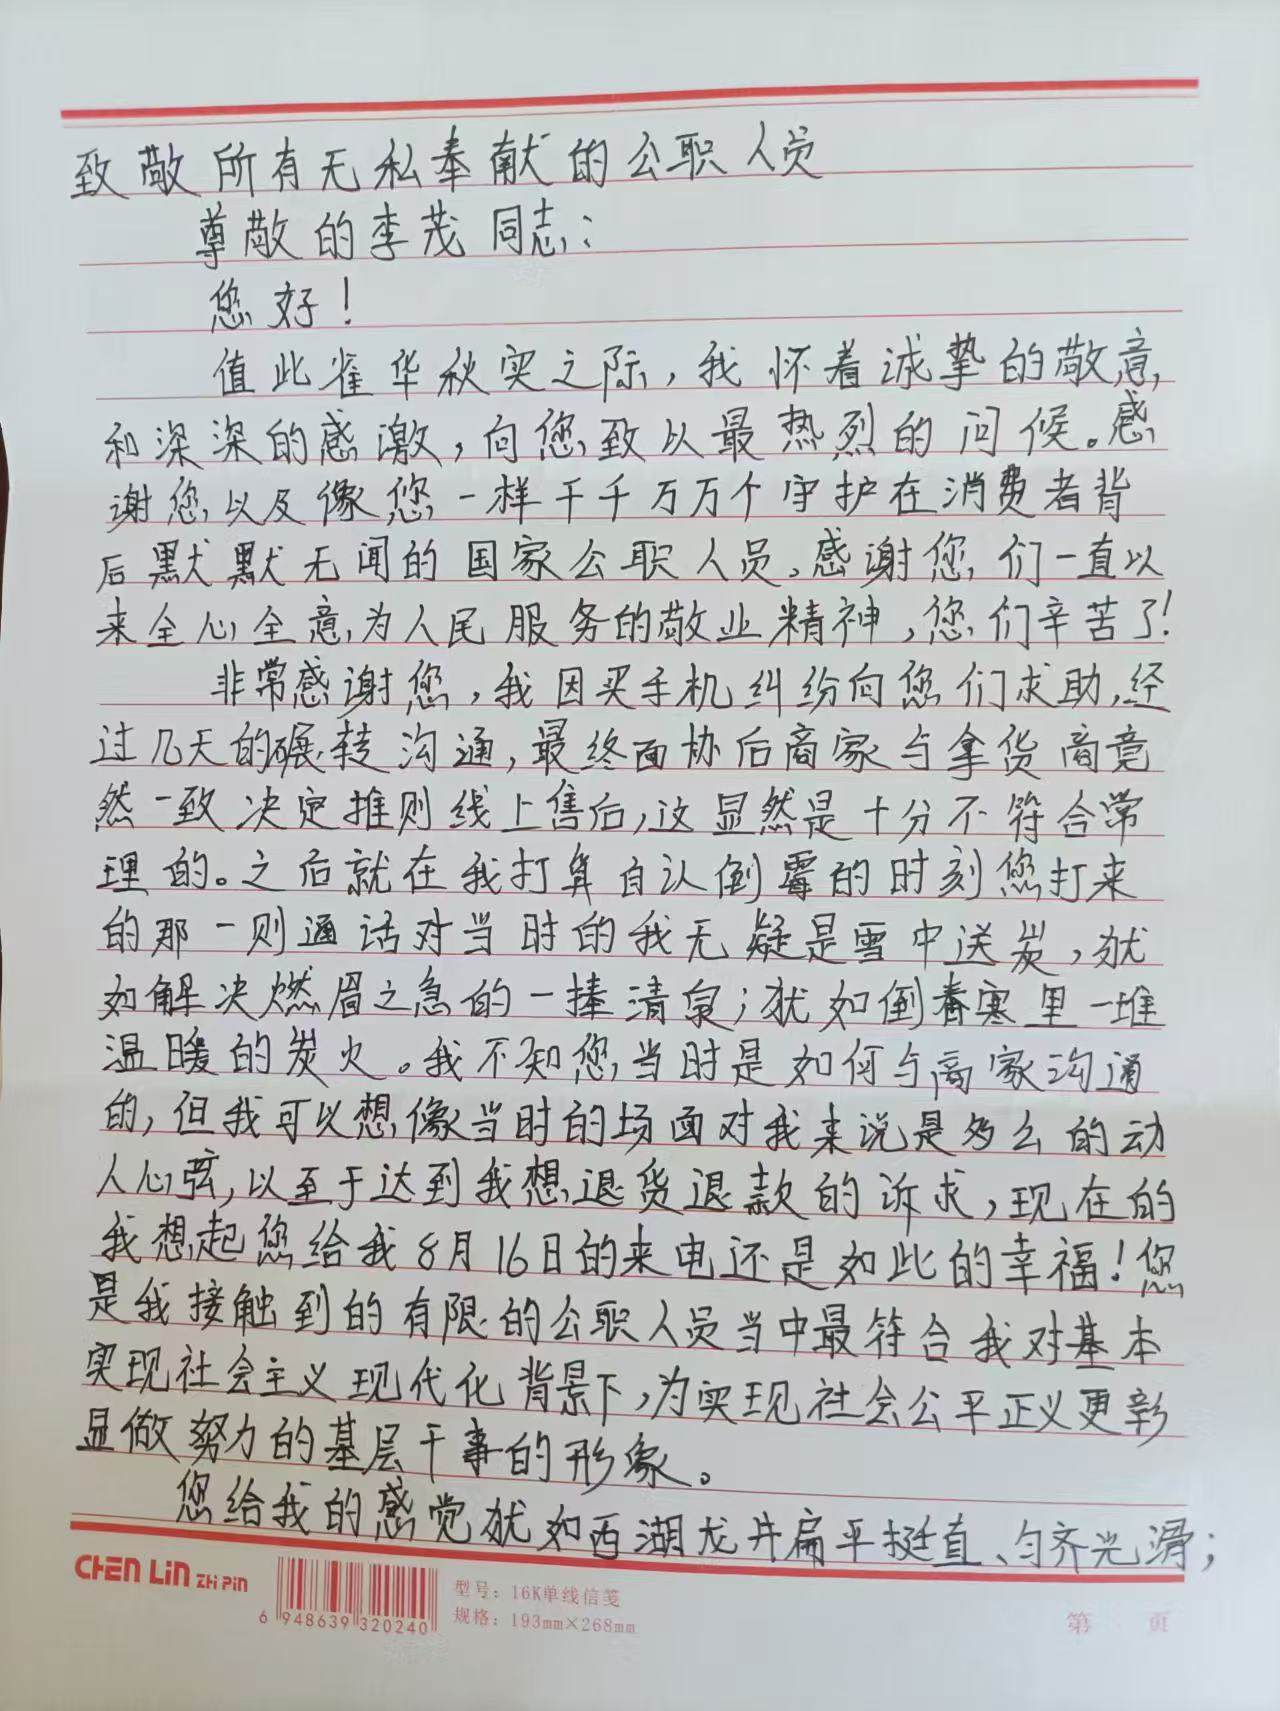 致敬所有无私奉献的公职人员
尊敬的李茂同志：
您好！
值此雀华秋实之际，我怀着诚挚的敬意，
和深深的感激，向您致以最热烈的问候。感
谢您以及像您一样千千万万个守护在消费者背
后默默无闻的国家公职人员。感谢您们一直以
来全心全意为人民服务的敬业精神，您们辛苦了！
非常感谢您，我因买手机纠纷向您们求助，经
过几天的碾转沟通，最终面协后商家与拿货商竟
然一致决定推则线上售后，这显然是十分不符合常
理的。之后就在我打算自认倒霉的时刻您打来
的那一则通话对当时的我无疑是雪中送炭，犹
如解决燃眉之急的一捧清泉；犹如倒春寒里一堆
温暖的炭火。我不知您当时是如何与商家沟通
的，但我可以想像当时的场面对我来说是多么的动
人心弦，以至于达到我想退货退款的诉求，现在的
我想起您给我8月16日的来电还是如此的幸福！您
是我接触到的有限的公职人员当中最符合我对基本
实现社会主义现代化背景下，为实现社会公平正义更彰
显做努力的基层干事的形象。
您给我的感觉犹如西湖龙井扁平挺直、匀齐光滑；
CHEN LiN ZHi PiN
6 948639 320240
型号：16K单线信笺
规格：193mm×268mm
第 页